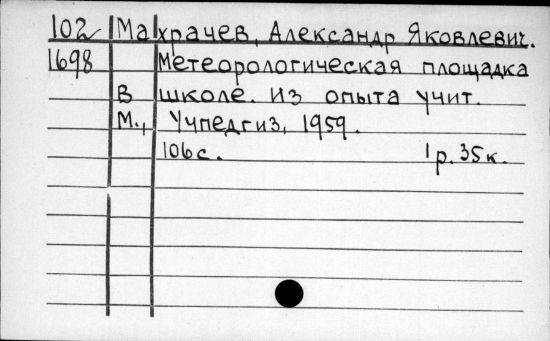 102 Махрачев, Александр Яковлевич.
1698 Метеорологическая площадка
в школе. Из опыта учит.
М., Учпедгиз, 1959.
106с. 1р.35к.